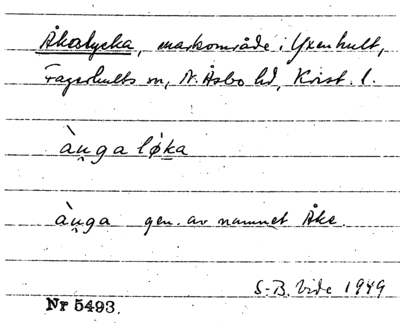 Åkoslycka, markområde i Yxenhult,
Fagerhults sn, N. Åsbo hd, Krist. l.
àu̯ga løka
àu̯ga gen. av namnet Åke.
S.-B. Vide 1949
Nr 5493.